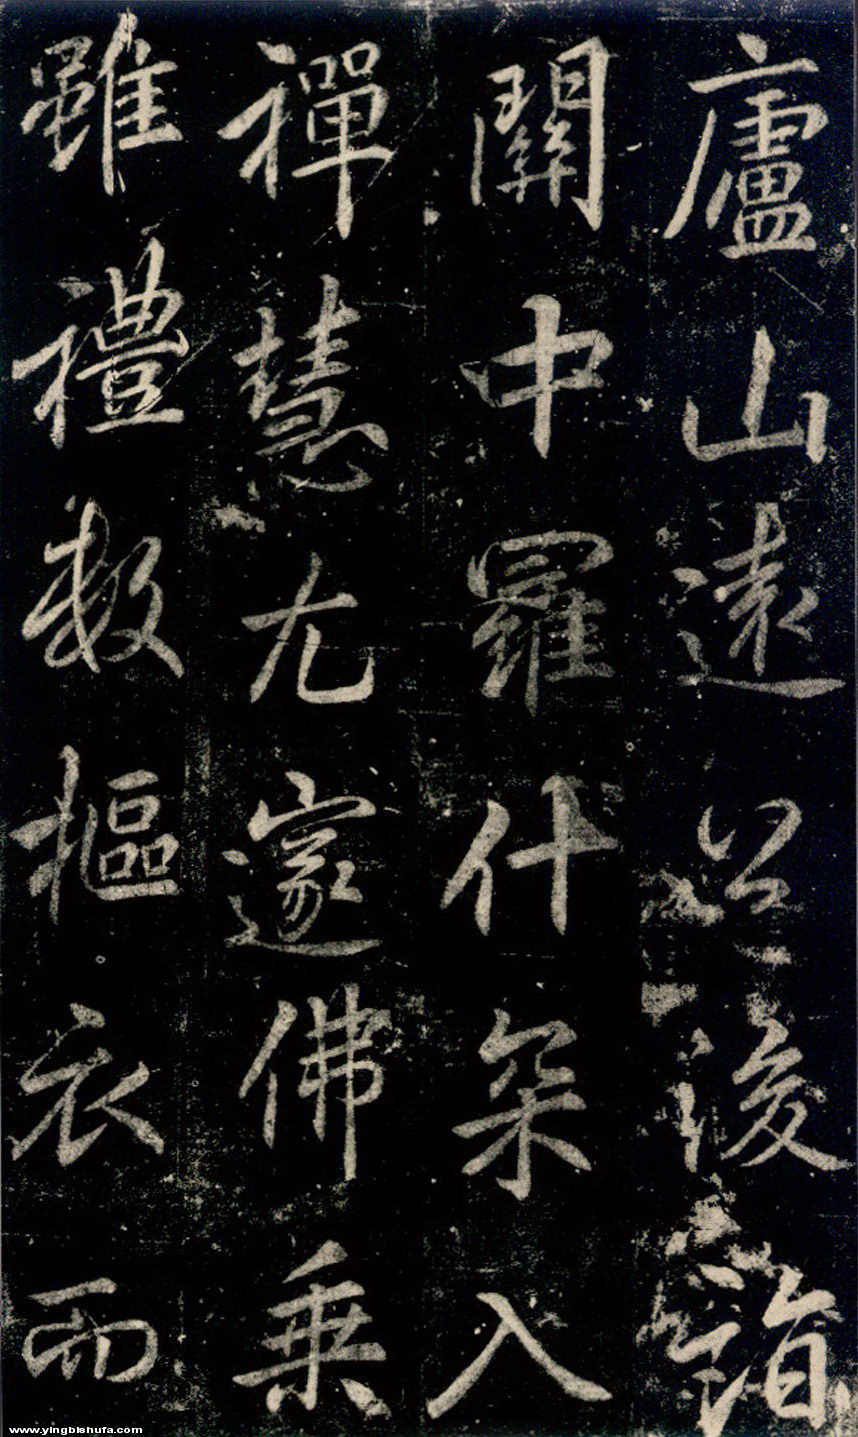 廬山遠公後詣
關中羅什入
禪慧尤邃佛乘
雖禮數摳衣而
www.yingbishufa.com